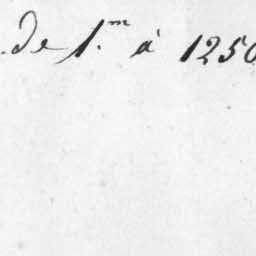 de 1.m à 1250